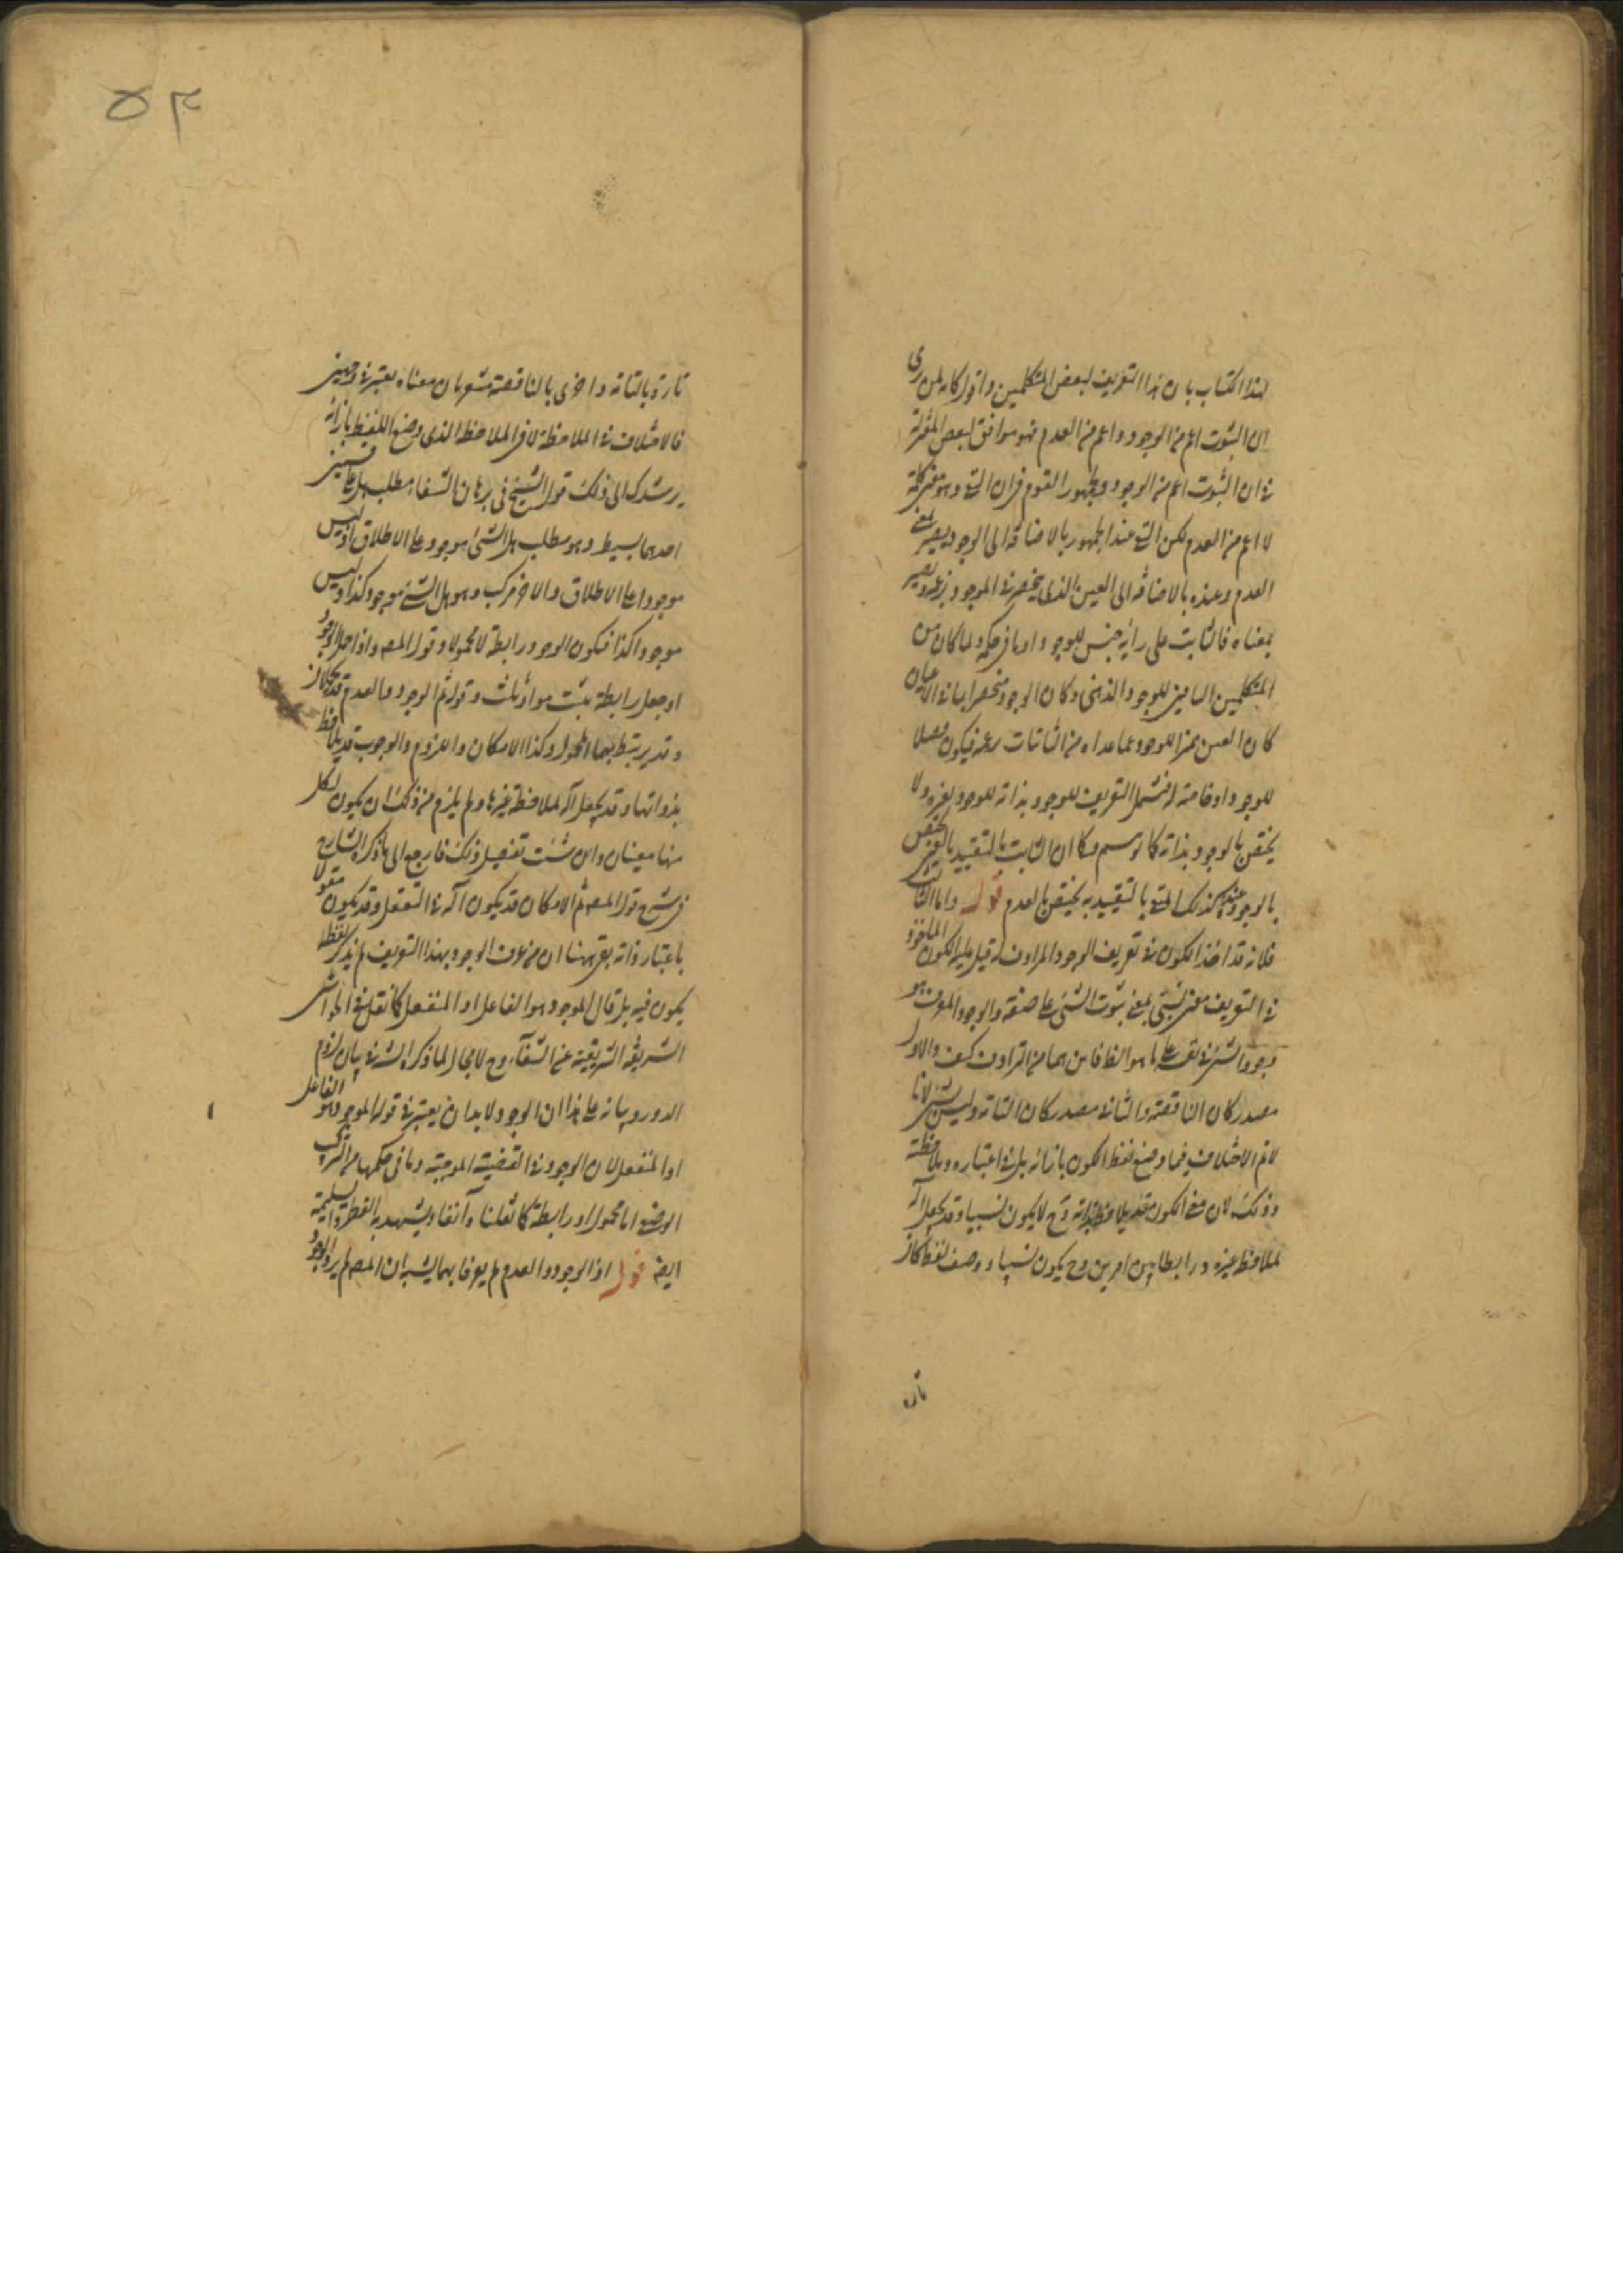 لهذا الكتاب بان هذا التعريف لبعض المتكلمين واقول كانه لمن يرى
ان الثبوت اعم من الوجود واعم من العدم فهو موافق لبعض المعتزلة
في ان الثبوت اعم من الوجود ولجمهور القوم في ان النفي وهو مفهوم كلمة
لا اعم من العدم لكن النفي عند الجمهور بالاضافة الى الوجود يصير بمعنى
العدم وعنده بالاضافة الى العين الذي ينحصر في الموجود بزعمه ويصير
بمعناه فالثابت على رايه جنس للوجود او ما في حكمه ولما كان من
المتكلمين النافين للوجود الذهني وكان الوجود منحصرا بما في الاعيان
كان العين مميزا للوجود عما عداه من الثابتات برعمه فيكون فصلا
للوجود او خاصة له فيشمل التعريف للوجود بذاته للوجود بغيره ولا
يختص بالوجود بذاته كما توهم وكما ان الثابت بالتقييد بالعين يختص
بالوجود عنده كذلك المنفي بالتقييد به يختص بالعدم قوله واما الثاني
فلانه قد اخذ الكون في تعريف الوجود المرادف له قيل عليه الكون الماخوذ
في التعريف معنى نسبي بمعنى ثبوت الشيء على صفة والوجود المعرف هو
وجود الشيء في نفسه على ما هو الظ فاين هما من الترادف كيف والاول
مصدر كان الناقصة والثاني مصدر كان التامة وليس بشيء لانا
لا نم الاختلاف فيما وضع لفظ الكون بازائه بل في اعتباره وملاحظته
وذلك لان معنى الكون قد يلاحظ بذاته وح لا يكون نسبيا وقد يجعل آلة
لملاحظة غيره ورابطا بين امرين وح يكون نسبيا ووصف لفظ كان
تارة
٥٣
تارة بالتامة واخرى بالناقصة مشعر بان معناه يعتبر في وجهين
فالاختلاف في الملاحظة لا في الملاحظ الذي وضع اللفظ بازائه
يرشدك الى ذلك قول الشيخ في برهان الشفاء مطلب هل على قسمين
احدهما بسيط وهو مطلب هل الشيء موجود على الاطلاق او ليس
موجودا على الاطلاق والاخر مركب وهو هل الشيء موجود كذا او ليس
موجودا كذا فيكون الوجود رابطة لا محمولا وقول المصـ واذا حمل الوجود
او جعل رابطة يثبت مواد ثلث وقوله ثم الوجود والعدم قد يحملان
وقد يرتبط بهما المحمول وكذا الامكان واللزوم والوجوب قد يلاحظ
بذواتها وقد يجعل آلة لملاحظة غيرها ولم يلزم من ذلك ان يكون لكل
منها معنيان وان شئت تفصيل ذلك فارجع الى ما ذكره الشارح
في شرح قول المصـ ثم الامكان قد يكون آلة في التعقل وقد يكون معقولا
باعتبار ذاته بقي ههنا ان من عرف الوجود بهذا التعريف لم يذكر لفظ
يكون فيه بل قال الموجود هو الفاعل او المنفعل كما نقل في الحواشي
الشريفة الشريفية عن الشفاء وح لا مجال لما ذكره الشـ في بيان لزوم
الدور وبيانه على هذا ان الوجود لابد ان يعتبر في قوله الموجود هو الفاعل
او المنفعل لان الوجود في القضية الموجبة وما في حكمها من التركيب
الوصفي اما محمول او رابطة كما نقلنا آنفا ويشهد به الفطرة السليمة
ايضـ قوله اذ الوجود والعدم لم يعرفا بهما يشبه ان المصـ لم يرد بالوجود